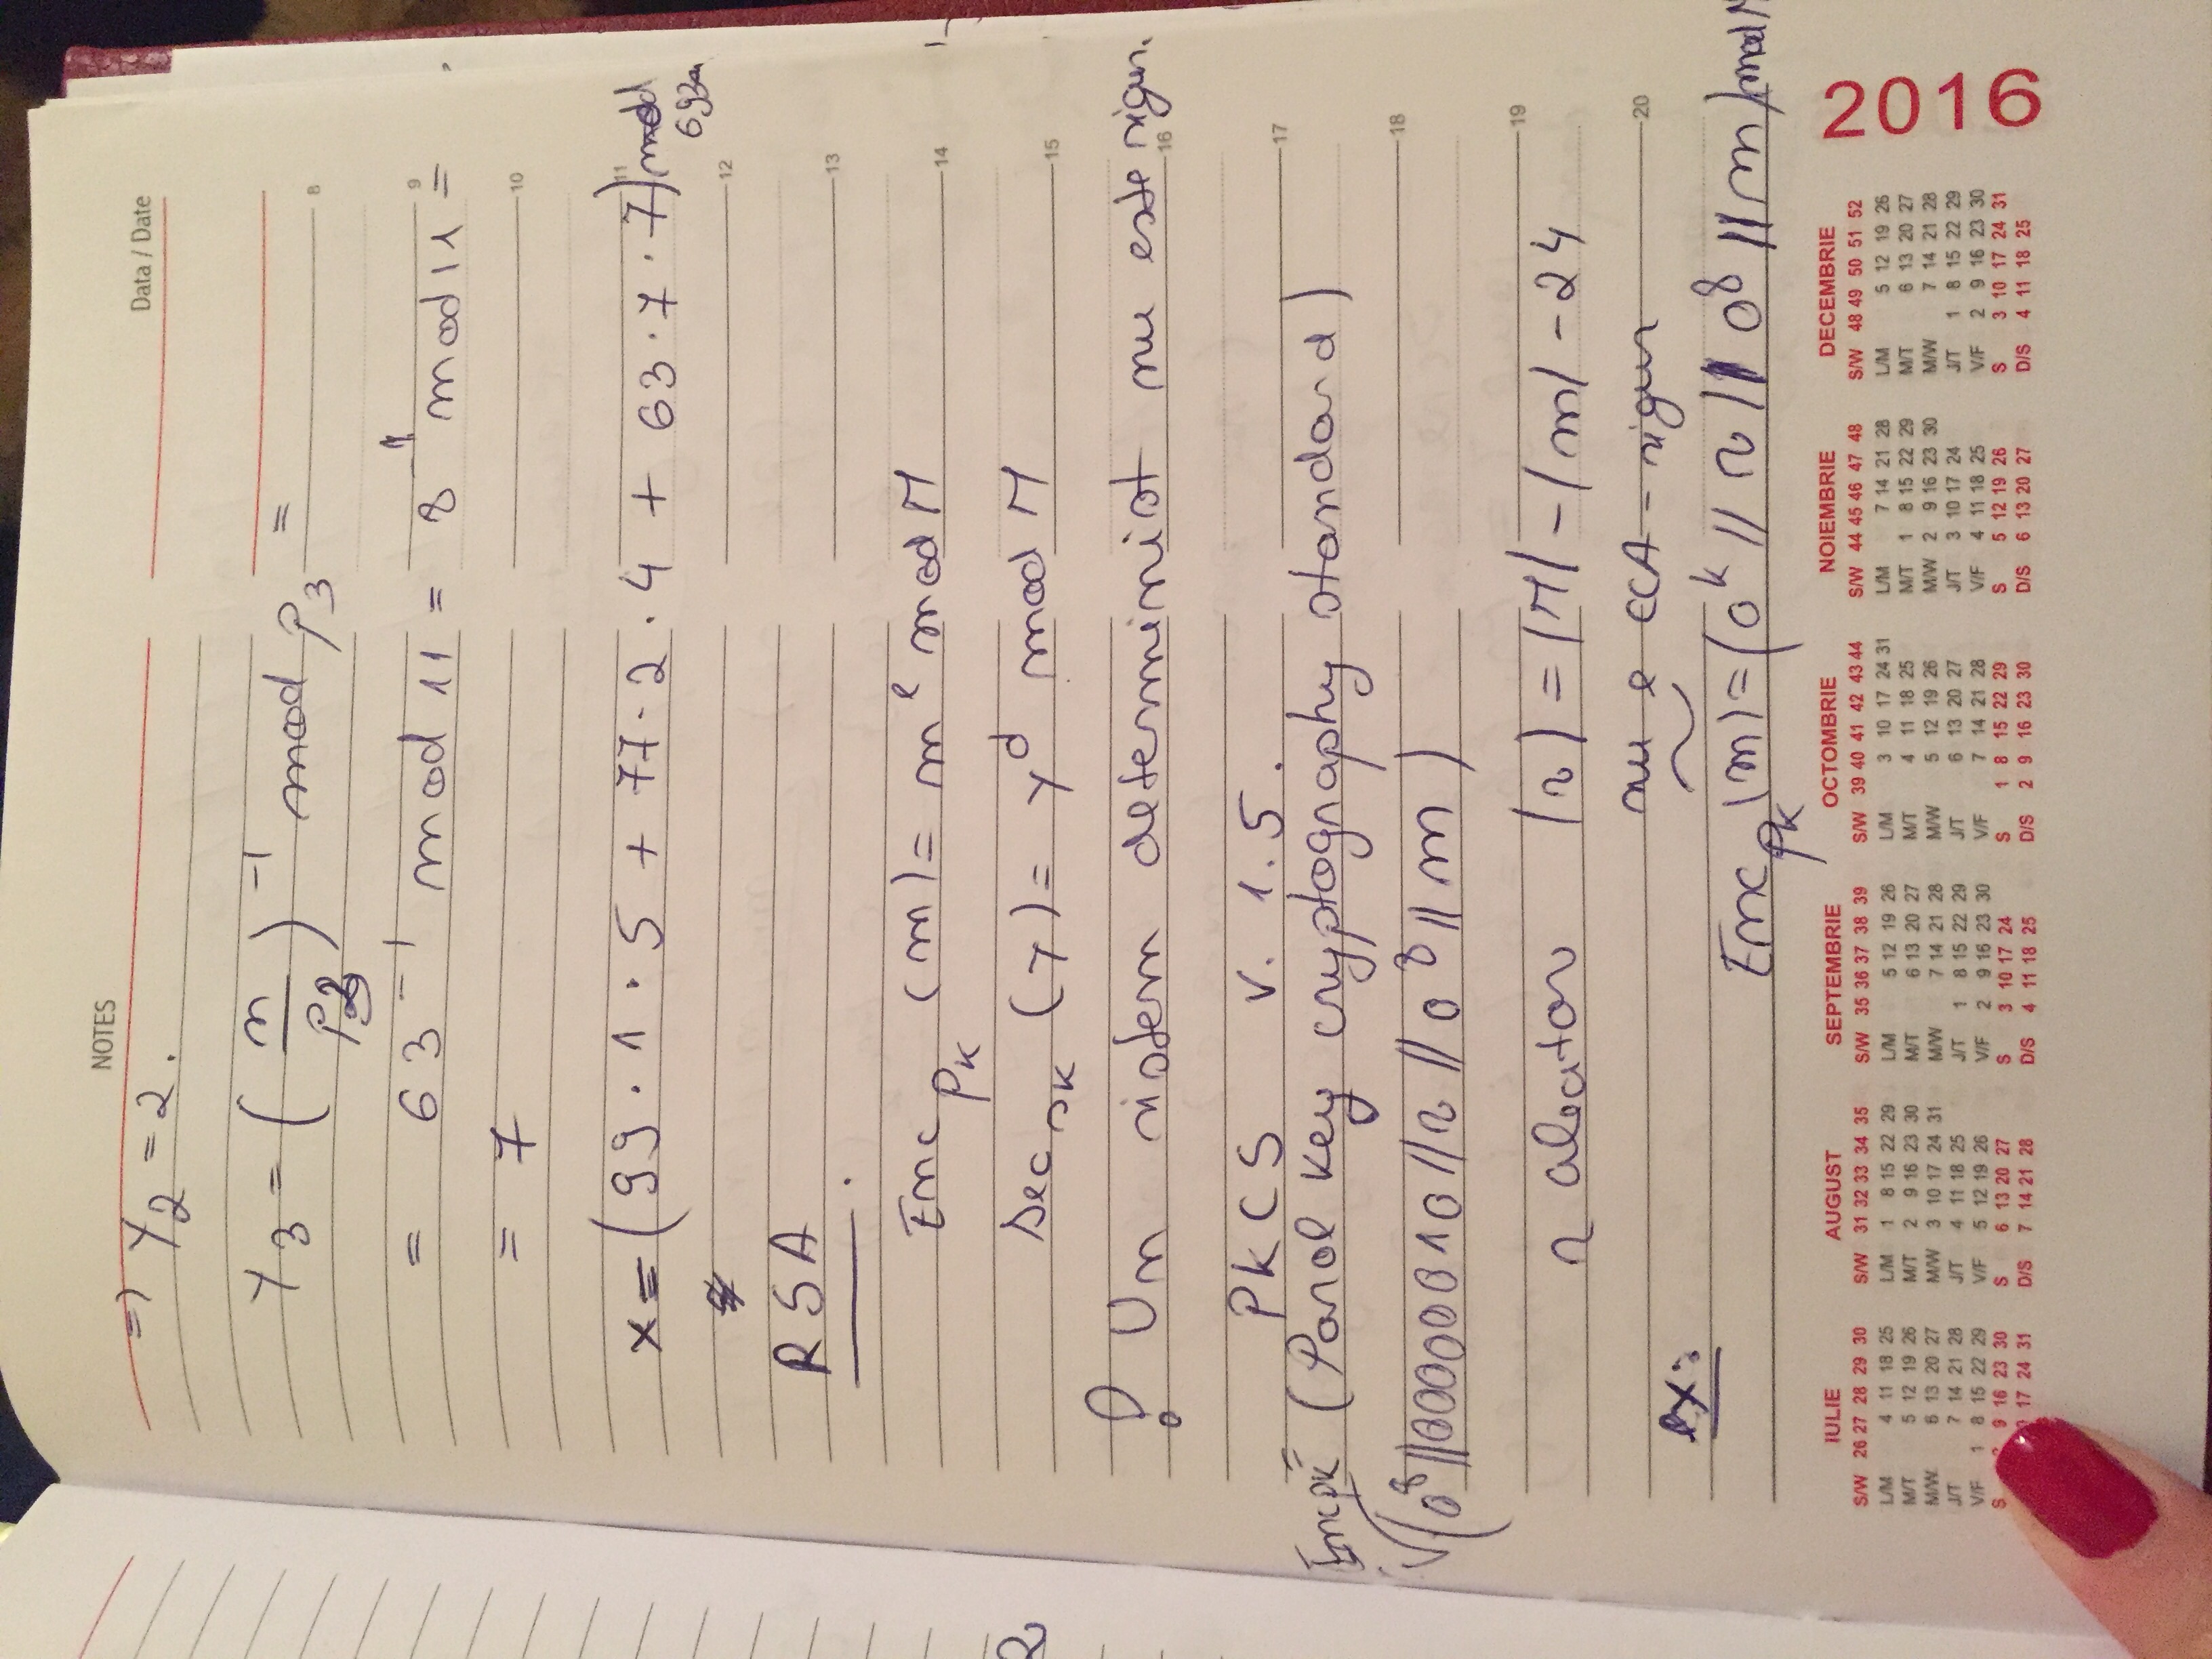 NOTES
Data / Date
=) Y2 = 2.
Y3 = (n/p3)^-1 mod p3 =
8
= 63^-1 mod 11 = 8^-1 mod 11 =
9
= 7
10
x = (99 · 1 · 5 + 77 · 2 · 4 + 63 · 7 · 7) mod 693
11
12
RSA.
13
Enc_pk (m) = m^e mod M
14
Dec_sk (y) = y^d mod M
15
! Un sistem determinist nu este sigur.
16
PKCS v. 1.5.
17
Enc_pk = (Parol key cryptography standard)
(0^8 || 00000010 || r || 0^8 || m)
18
r aleator |r| = |M| - |m| - 24
19
nu e CCA - sigur
20
ex:
Enc_pk (m) = (0^k || r || 0^8 || m) mod M
IULIE
S/W 26 27 28 29 30
L/M 4 11 18 25
M/T 5 12 19 26
M/W 6 13 20 27
J/T 7 14 21 28
V/F 1 8 15 22 29
S 2 9 16 23 30
17 24 31
AUGUST
S/W 31 32 33 34 35
L/M 1 8 15 22 29
M/T 2 9 16 23 30
M/W 3 10 17 24 31
J/T 4 11 18 25
V/F 5 12 19 26
S 6 13 20 27
D/S 7 14 21 28
SEPTEMBRIE
S/W 35 36 37 38 39
L/M 5 12 19 26
M/T 6 13 20 27
M/W 7 14 21 28
J/T 1 8 15 22 29
V/F 2 9 16 23 30
S 3 10 17 24
D/S 4 11 18 25
OCTOMBRIE
S/W 39 40 41 42 43 44
L/M 3 10 17 24 31
M/T 4 11 18 25
M/W 5 12 19 26
J/T 6 13 20 27
V/F 7 14 21 28
S 1 8 15 22 29
D/S 2 9 16 23 30
NOIEMBRIE
S/W 44 45 46 47 48
L/M 7 14 21 28
M/T 1 8 15 22 29
M/W 2 9 16 23 30
J/T 3 10 17 24
V/F 4 11 18 25
S 5 12 19 26
D/S 6 13 20 27
DECEMBRIE
S/W 48 49 50 51 52
L/M 5 12 19 26
M/T 6 13 20 27
M/W 7 14 21 28
J/T 1 8 15 22 29
V/F 2 9 16 23 30
S 3 10 17 24 31
D/S 4 11 18 25
2016